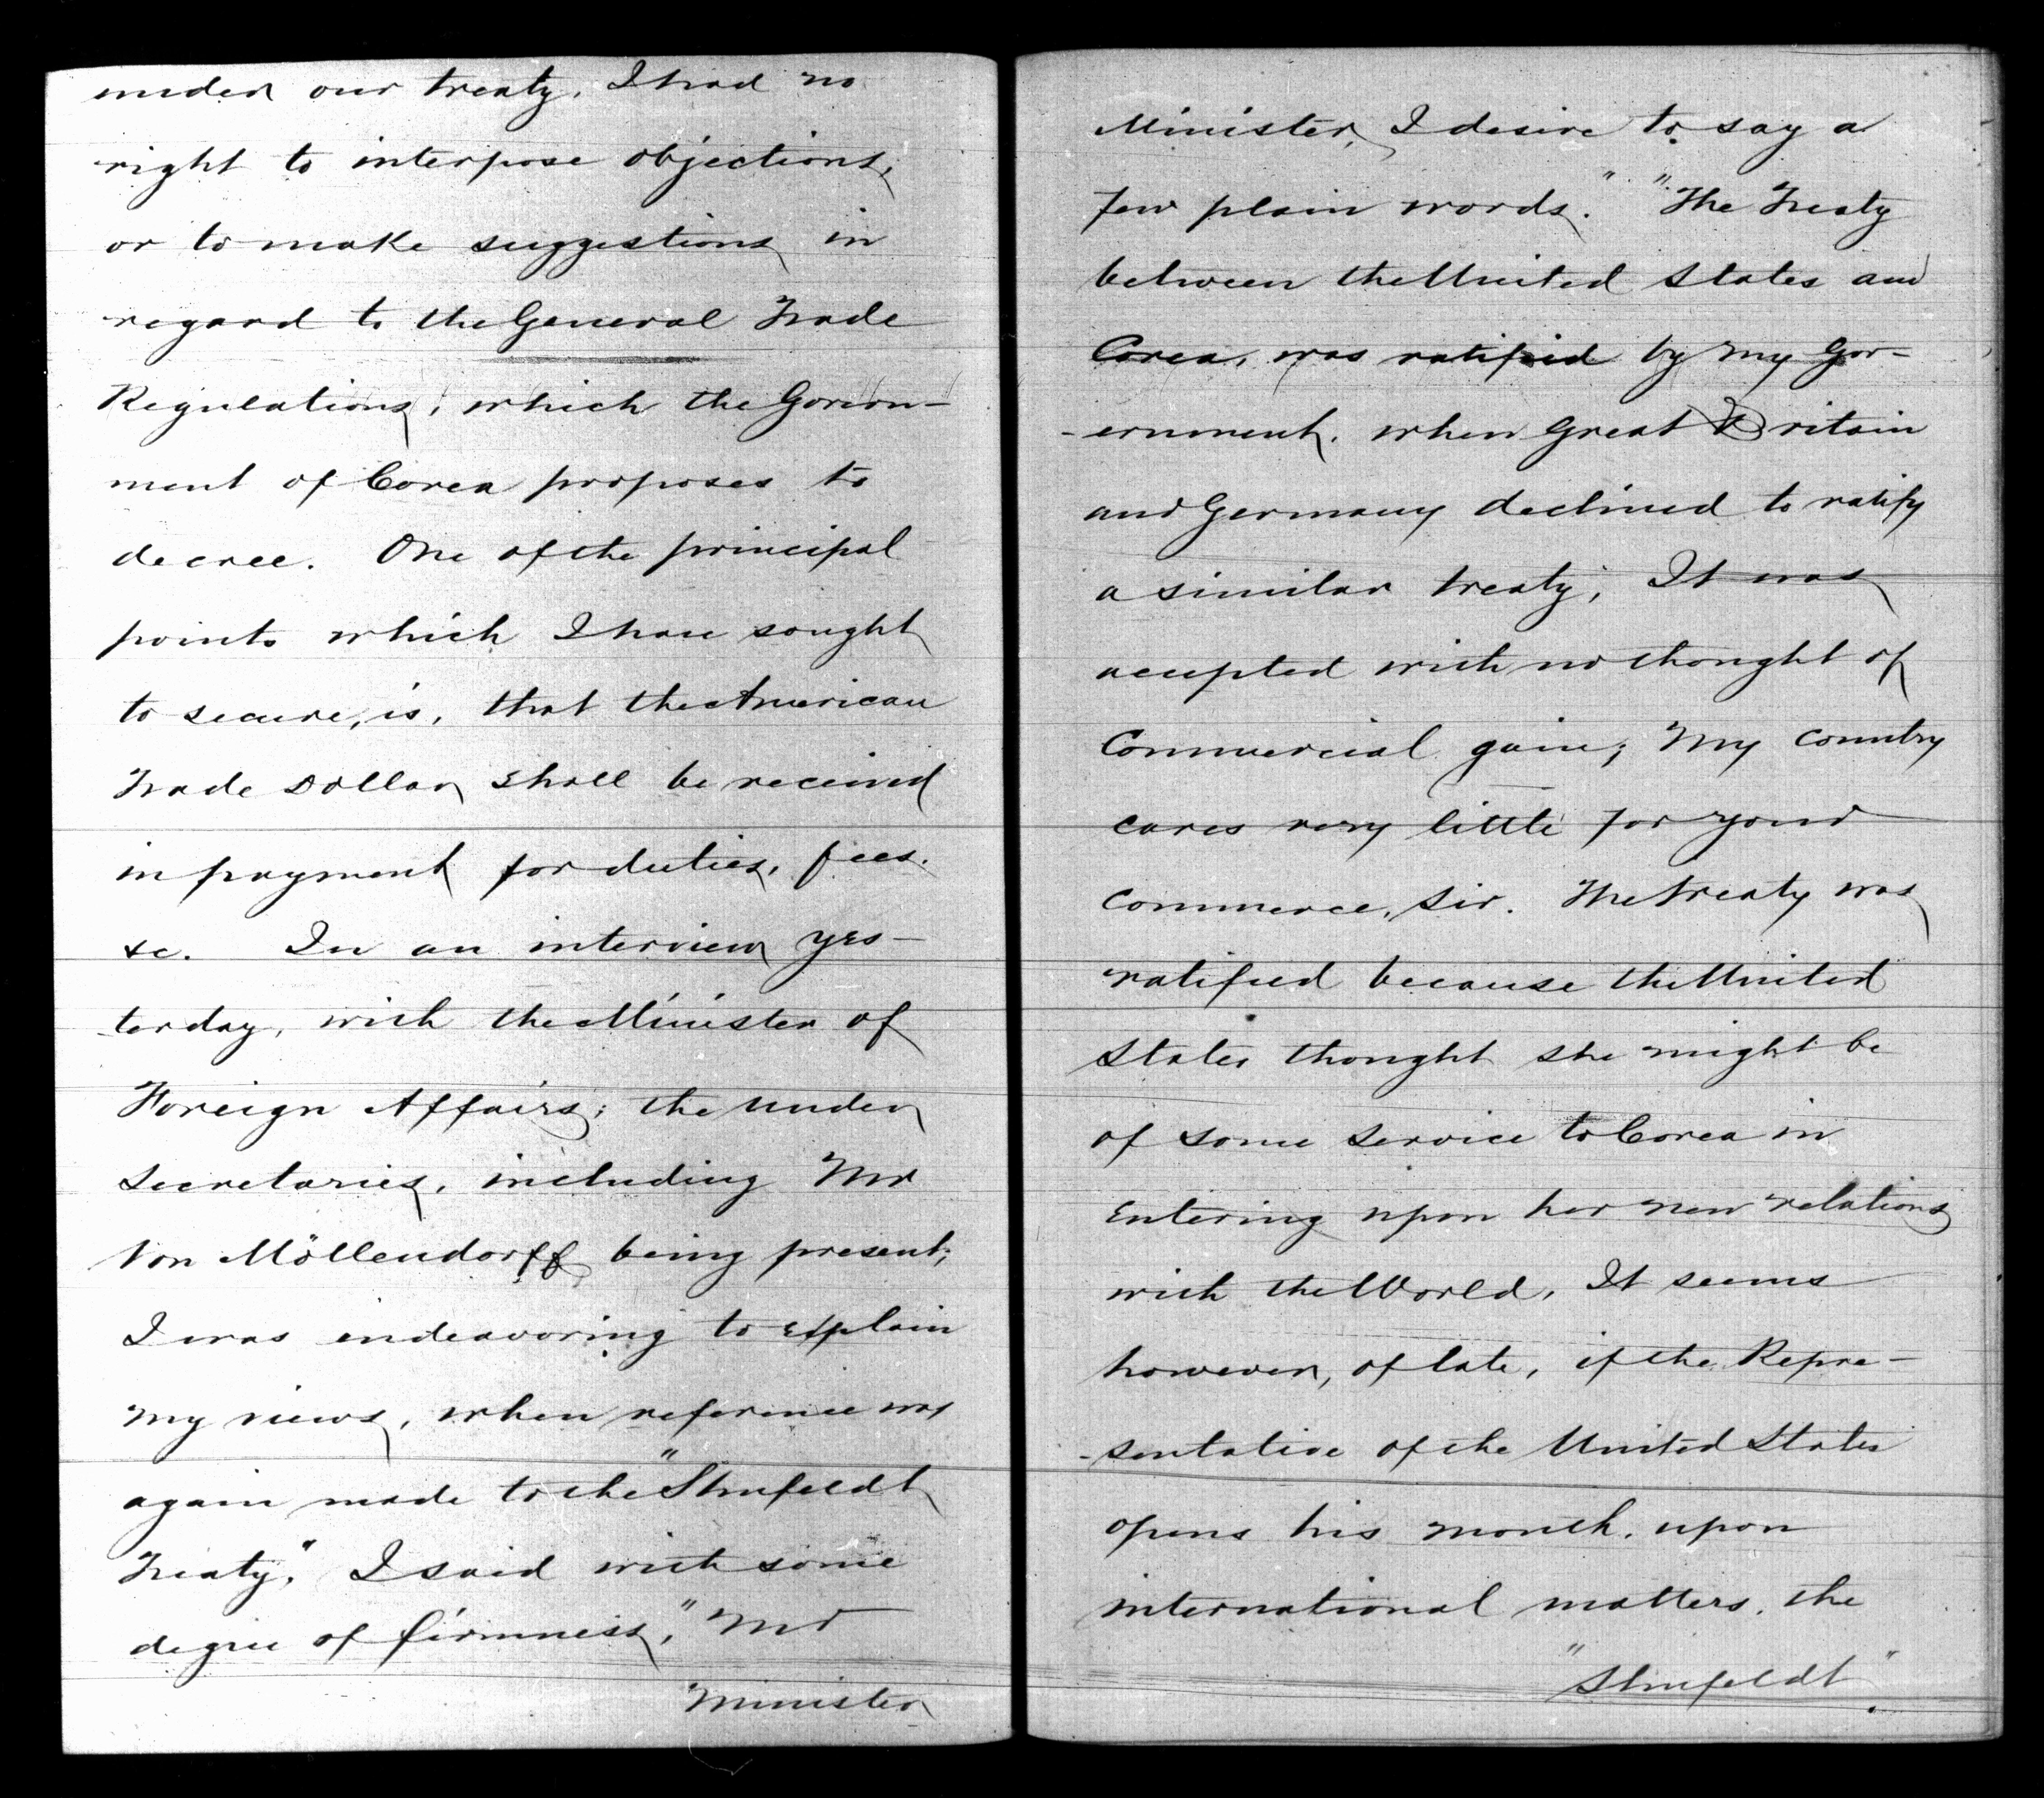 under our treaty, I had no
right to interpose objections,
or to make suggestions in
regard to the General Trade
Regulations, which the Govern-
ment of Corea proposes to
decree. One of the principal
points which I have sought
to secure, is, that the American
Trade Dollar shall be received
in payment for duties, fees.
&c. In an interview yes-
terday, with the Minister of
Foreign Affairs; the under
Secretaries, including Mr
Von Möllendorff being present;
I was endeavoring to explain
my views, when reference was
again made to the "Shufeldt
Treaty," I said with some
degree of firmness, "Mr
Minister
Minister, I desire to say a
few plain words." "The Treaty
between the United States and
Corea, was ratified by my Gov-
-ernment, when Great Britain
and Germany declined to ratify
a similar treaty; It was
accepted with no thought of
Commercial gain; My Country
cares very little for your
Commerce, Sir. The treaty was
ratified because the United
States thought she might be
of some service to Corea in
entering upon her new relations
with the World, It seems
however, of late, if the Repre-
-sentative of the United States
opens his mouth, upon
international matters, the
"Shufeldt"